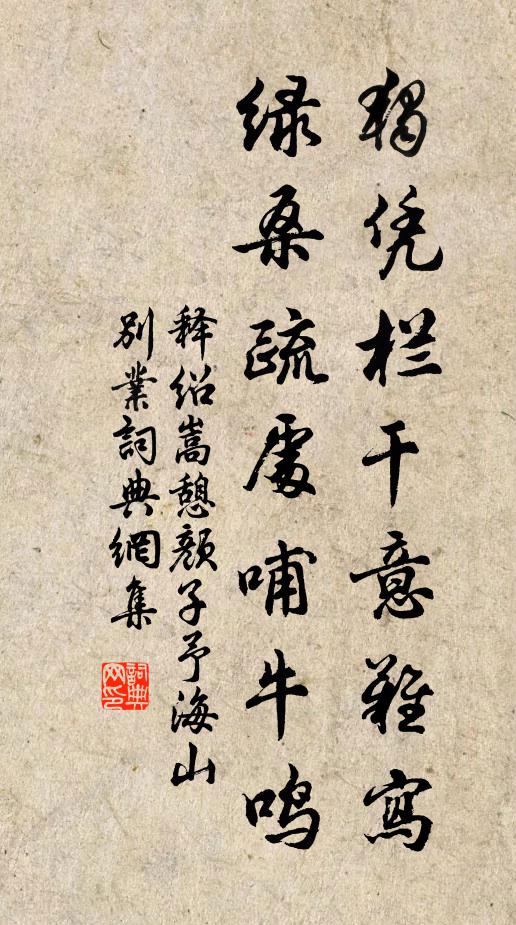 独凭栏干意难写
绿桑疏处哺牛鸣
释绍嵩憩颜子予海山
别业词典網集
詞典
网印